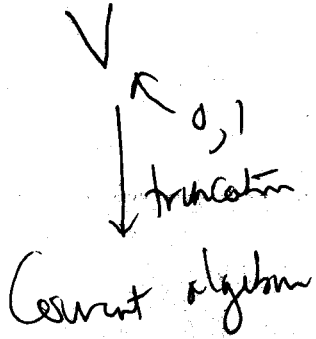 V
0, 1
truncation
Courant algebra